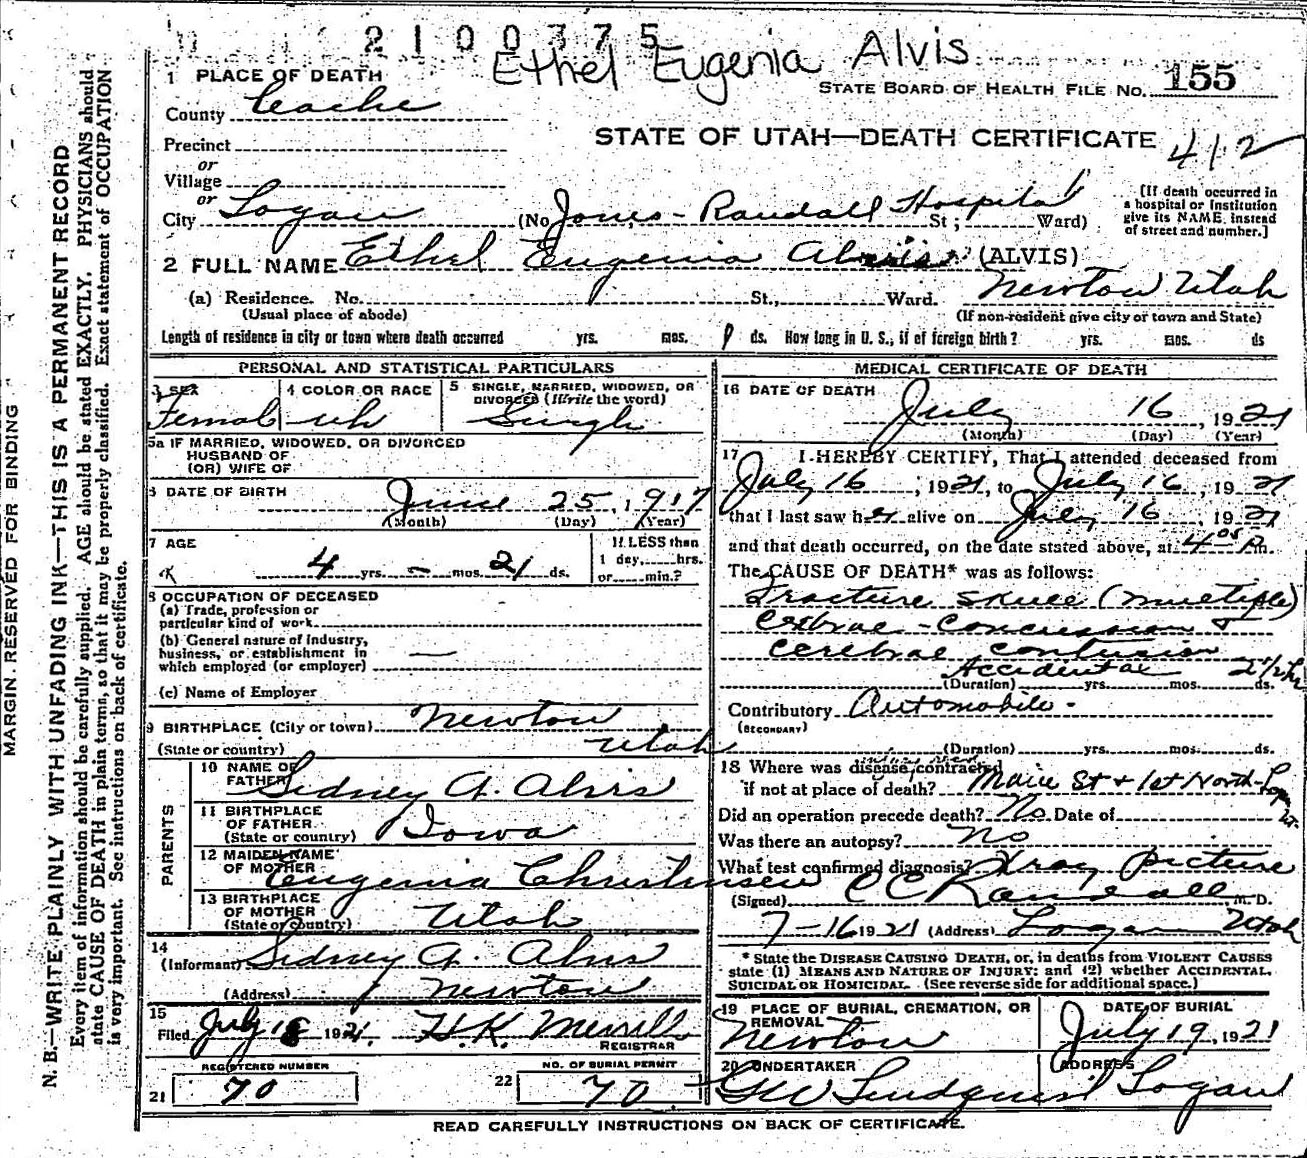 2100775
Ethel Eugenia Alvis
1 PLACE OF DEATH
STATE BOARD OF HEALTH FILE NO. 155
County Cache
STATE OF UTAH—DEATH CERTIFICATE 412
Precinct
or
Village
or
City Logan (No Jones-Randall Hospital St; Ward)
[If death occurred in
a hospital or institution
give its NAME instead
of street and number.]
2 FULL NAME Ethel Eugenia Alvis (ALVIS)
(a) Residence. No. St., Ward. Newton Utah
(Usual place of abode) (If non-resident give city or town and State)
Length of residence in city or town where death occurred yrs. mos. 1 ds. How long in U. S., if of foreign birth? yrs. mos. ds
PERSONAL AND STATISTICAL PARTICULARS
3 SEX
Femal
4 COLOR OR RACE
wh
5 SINGLE, MARRIED, WIDOWED, OR
DIVORCED (Write the word)
Single
5a IF MARRIED, WIDOWED, OR DIVORCED
HUSBAND OF
(OR) WIFE OF
6 DATE OF BIRTH June 25, 1917
(Month) (Day) (Year)
7 AGE
4 yrs. — mos. 21 ds.
If LESS than
1 day, hrs.
or min.?
8 OCCUPATION OF DECEASED
(a) Trade, profession or
particular kind of work
(b) General nature of industry,
business, or establishment in
which employed (or employer) —
(c) Name of Employer
9 BIRTHPLACE (City or town) Newton
(State or country) Utah
PARENTS
10 NAME OF
FATHER Sidney A. Alvis
11 BIRTHPLACE
OF FATHER
(State or country) Iowa
12 MAIDEN NAME
OF MOTHER Eugenia Christensen
13 BIRTHPLACE
OF MOTHER
(State or country) Utah
14
(Informant) Sidney A. Alvis
(Address) Newton
15
Filed July 18 1921. H.K. Merrill
REGISTRAR
REGISTERED NUMBER
21 70
NO. OF BURIAL PERMIT
22 70
MEDICAL CERTIFICATE OF DEATH
16 DATE OF DEATH
July 16, 1921
(Month) (Day) (Year)
17 I HEREBY CERTIFY, That I attended deceased from
July 16, 1921, to July 16, 1921
that I last saw her alive on July 16, 1921
and that death occurred, on the date stated above, at 4 05 P.m.
The CAUSE OF DEATH* was as follows:
Fracture skull (multiple)
Cerbral - Concussion +
Cerebral contusion
Accidental 2 1/2 hr
(Duration) yrs. mos. ds.
Contributory Automobile -
(SECONDARY)
(Duration) yrs. mos. ds.
18 Where was disease contracted
if not at place of death? Main St + 1st North - Logan Ut.
Did an operation precede death? No Date of
Was there an autopsy? No
What test confirmed diagnosis? Xray picture
(Signed) C C Randall, M. D.
7-16 1921 (Address) Logan Utah
* State the DISEASE CAUSING DEATH, or, in deaths from VIOLENT CAUSES
state (1) MEANS AND NATURE OF INJURY; and (2) whether ACCIDENTAL,
SUICIDAL OR HOMICIDAL. (See reverse side for additional space.)
19 PLACE OF BURIAL, CREMATION, OR
REMOVAL
Newton
DATE OF BURIAL
July 19, 1921
20 UNDERTAKER
GW Lindquist
ADDRESS
Logan
READ CAREFULLY INSTRUCTIONS ON BACK OF CERTIFICATE.
MARGIN RESERVED FOR BINDING
N. B.—WRITE PLAINLY WITH UNFADING INK—THIS IS A PERMANENT RECORD
Every item of information should be carefully supplied. AGE should be stated EXACTLY. PHYSICIANS should
state CAUSE OF DEATH in plain terms, so that it may be properly classified. Exact statement of OCCUPATION
is very important. See instructions on back of certificate.